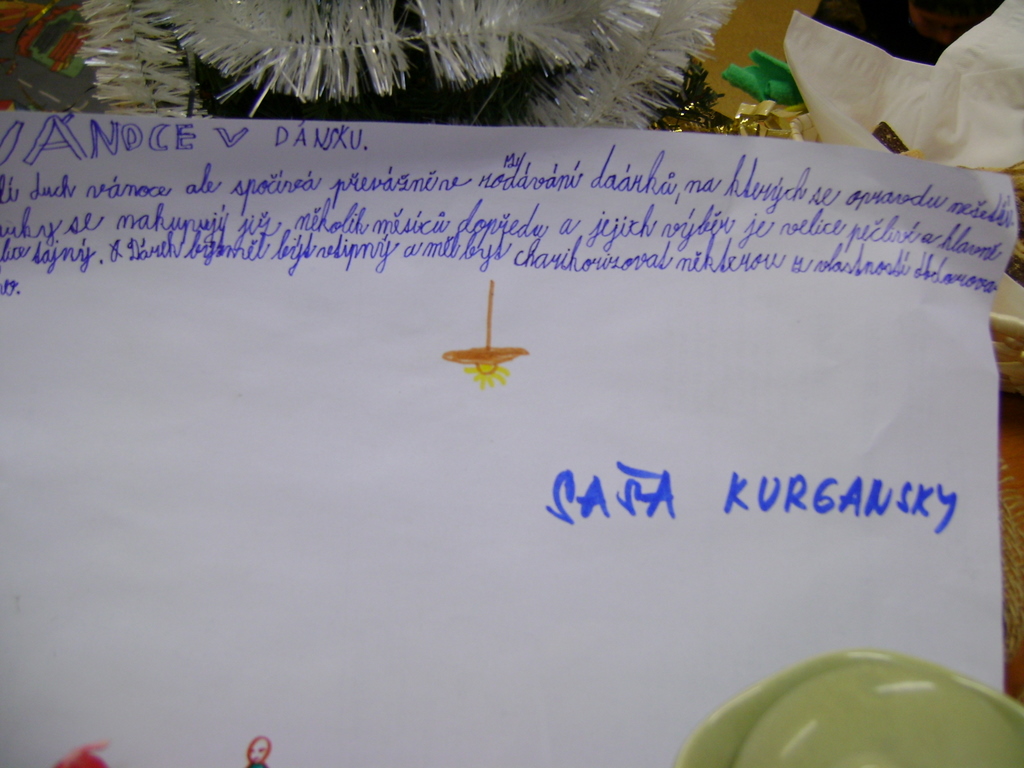 VÁNOCE V DÁNSKU.
duch vánoce ale spočívá převážně v rozdávání daárků, na kterých se opravdu nešetří
se nakupují již několik měsíců dopředu a jejich výběr je velice pečlivé a hlavně
tajný. Dárek by měl být vtipný a měl být charihorizovat některou z vlastností
SAŠA KURGANSKY